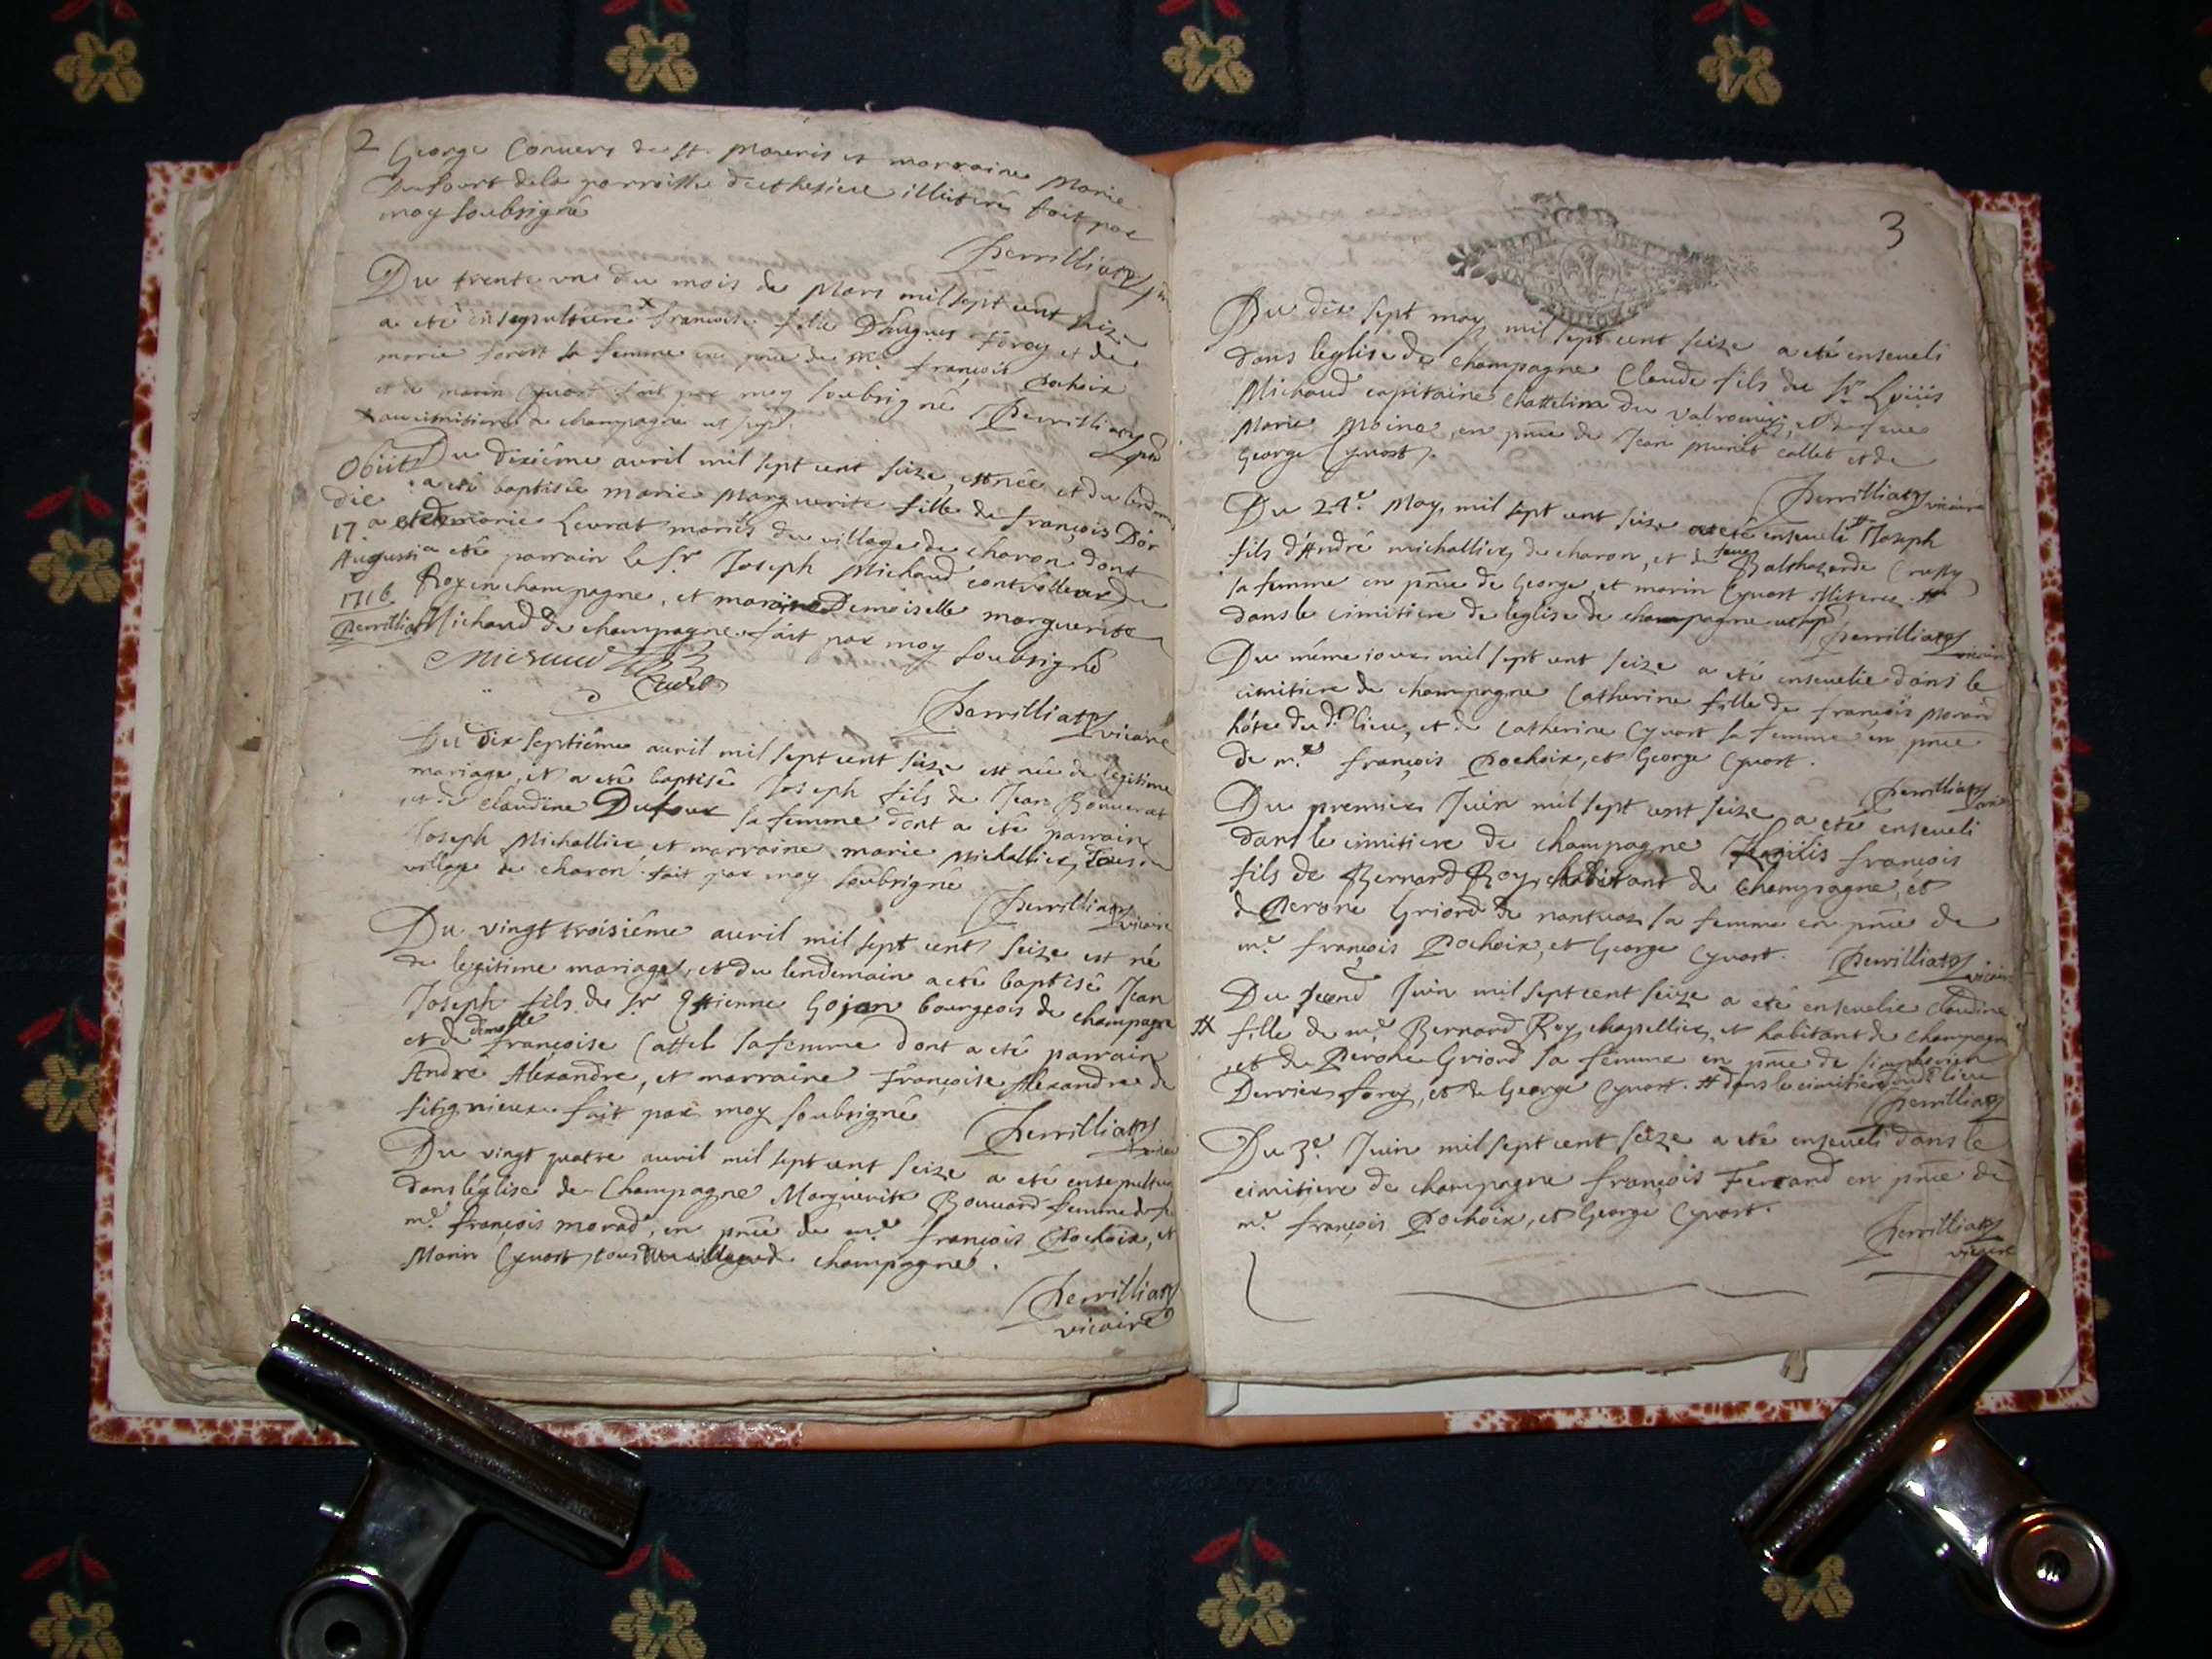 2
George Convers de St. Mauris et marraine Marie
Dufourt de la parroisse illiterés fait par
moy soubsigné
Perrilliat
Du trente un du mois de Mars mil sept cent seize
a eté ensepulturé x francoise fille D'hugues foray et de
marie sa femme en pnce de me. françois Pochoix
et de marin Cyvort fait par moy soubsigné Perrilliat
x au cimitiere de champagne ut sup.
Obiit die 17a Augusti 1716 Perrilliat
Du dixième avril mil sept cent seize, est née et du lendemain
a eté baptisée marie Marguerite fille de françois D'or
et de marie Levrat mariés du village de charon dont
a eté parrain le Sr. Joseph Michaud controlleur du
Roy en champagne, et maraine Demoiselle marguerite
Michaud de champagne. fait par moy soubsigné
Michaud
Perrilliat vicaire
Du dix septième avril mil sept cent seize est née de legitime
mariage, et a eté baptisé Joseph fils de Jean Bonnerat
et de claudine Dufour sa femme dont a eté parrain
Joseph Michallier et marraine marie Michallier, Tous du
village de charon fait par moy soubsigné
Perrilliat vicaire
Du vingt troisième avril mil sept cent seize est né
de legitime mariage, et du lendemain a eté baptisé Jean
Joseph fils de Sr. Ettienne Gojon bourgeois de champagne
et de dmoselle françoise Cattel sa femme dont a eté parrain
André Alexandre, et marraine françoise Alexandre de
fitignieux fait par moy soubsigné
Perrilliat vicaire
Du vingt quatre avril mil sept cent seize a eté ensepulturé
dans léglise de Champagne Marguerite Bouvard femme de
me. françois morad, en pnce de me. françois Pochoix, et
Marin Cyvort tous du village de champagne.
Perrilliat
vicaire
3
Du dix sept may mil sept cent seize a eté enseveli
dans leglise de champagne Claude fils du Sr. Loüis
Michaud capitaine chattelin du valromey, et de feue
Marie Moine, en pnce de Jean collet et de
George Cyvort.
Perrilliat vicaire
Du 24e. May, mil sept cent seize a eté enseveli # Joseph
fils d'André michallier, de charon, et de feue Balthazarde
sa femme en pnce de George, et marin Cyvort illiterés #
dans le cimitiere de leglise de champagne ut sup
Perrilliat vicaire
Du même jour mil sept cent seize a eté ensevelie dans le
cimitiere de champagne Catherine fille de françois Morain
hôte du d. lieu, et de Catherine Cyvort sa femme en pnce
de me. françois Pochoix, et George Cyvort.
Perrilliat vicaire
Du premier Juin mil sept cent seize a eté enseveli
dans le cimitiere de champagne françois
fils de Bernard Roy, habitant de champagne, et
de Perone Griord de nantuaz sa femme en pnce de
me. françois Pochoix, et George Cyvort.
Perrilliat vicaire
Du second Juin mil sept cent seize a eté ensevelie Claudine
# fille de me. Bernard Roy, chapellier, et habitant de champagne
et de Perone Griord sa femme en pnce de
Derrier foray, et de George Cyvort. # dans le cimitiere du d. lieu
Perrilliat
Du 3e. Juin mil sept cent seize a eté enseveli dans le
cimitiere de champagne françois Ferrand en pnce de
me. françois Pochoix, et George Cyvort.
Perrilliat
vicaire